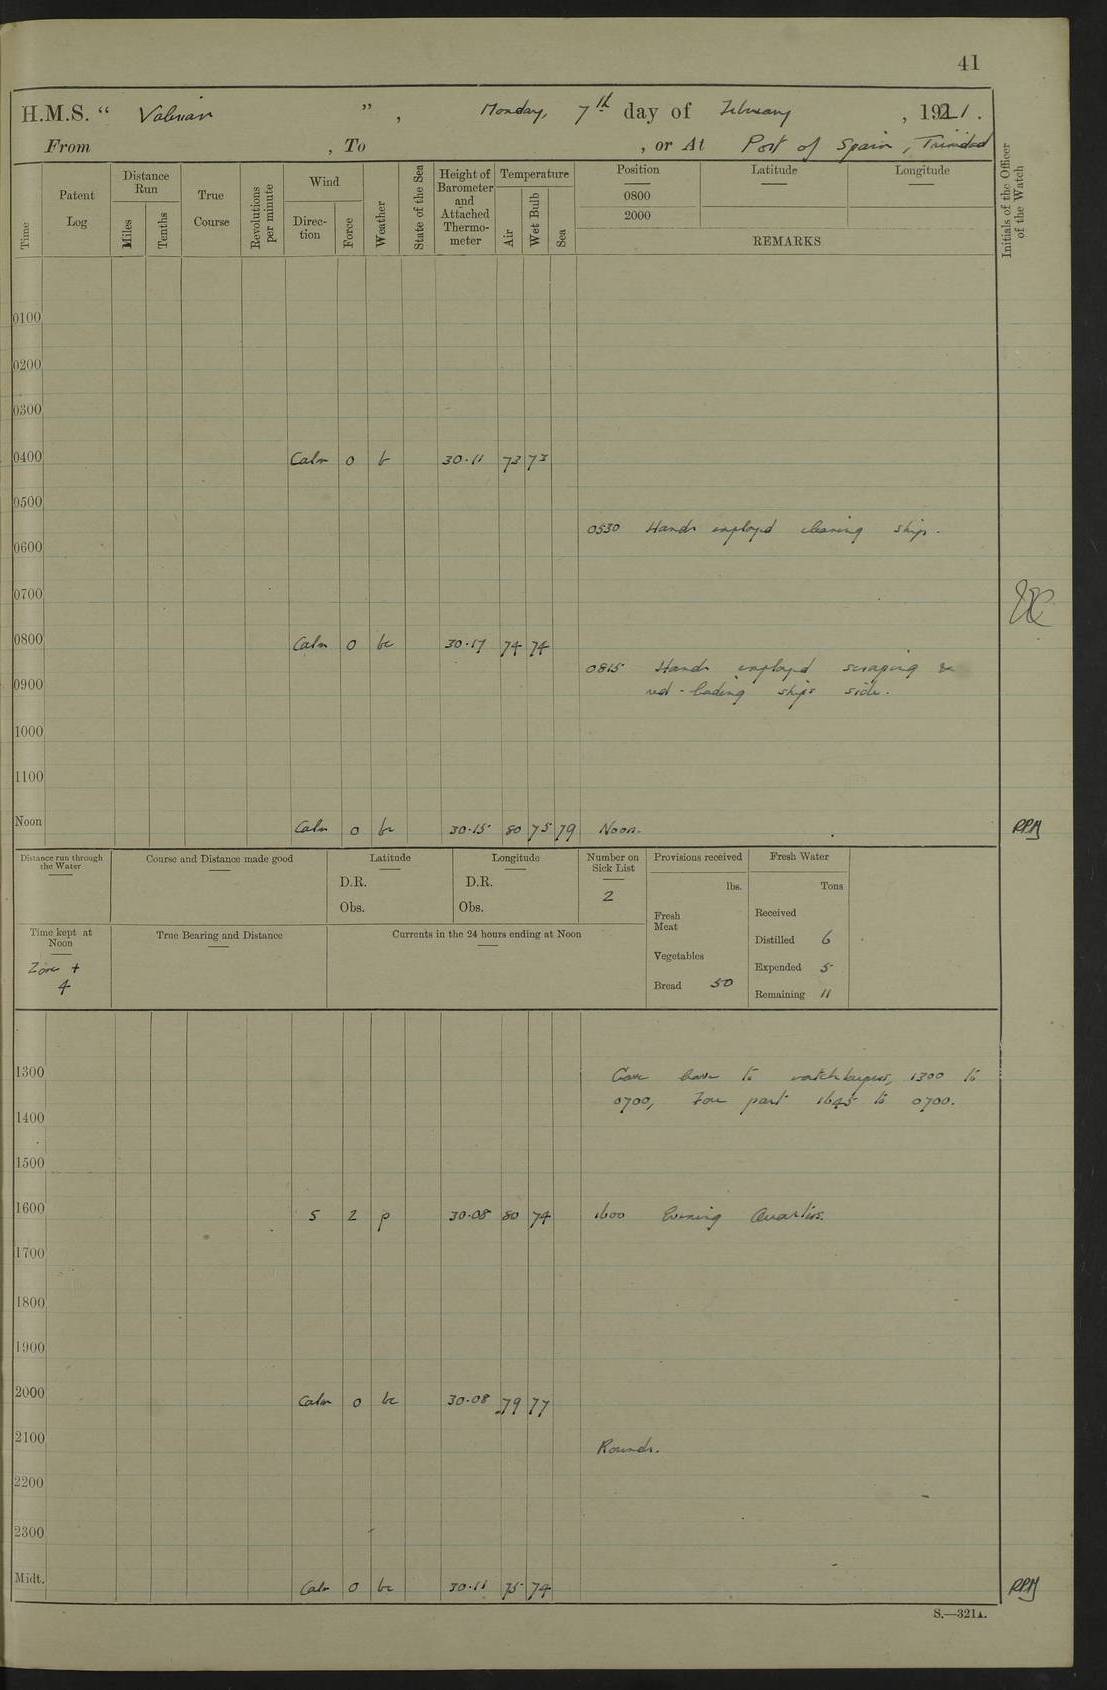 41
H.M.S. “ Valerian ” , Monday, 7th day of February , 1921.
From , To , or At Port of Spain, Trinidad
Time Patent Log Distance Run Miles Tenths True Course Revolutions per minute Wind Direc-tion Force Weather State of the Sea Height of Barometer and Attached Thermo-meter Temperature Air Wet Bulb Sea Position 0800 2000 Latitude Longitude
REMARKS
Initials of the Officer of the Watch
0100
0200
0300
0400 Calm 0 b 30.11 73 73
0500
0530 Hands employed cleaning ship.
0600
0700
0800 Calm 0 bc 30.17 74 74
0815 Hands employed scraping &
0900 red-leading ships side.
1000
1100
Noon Calm 0 bc 30.15 80 75 79 Noon. RPM
Distance run through the Water Course and Distance made good Latitude D.R. Obs. Longitude D.R. Obs. Number on Sick List 2 Provisions received lbs. Fresh Water Tons
Fresh Meat Received
Distilled 6
Vegetables Expended 5
Bread 50 Remaining 11
Time kept at Noon Zone + 4 True Bearing and Distance Currents in the 24 hours ending at Noon
1300 Gave leave to watchkeepers, 1300 to
0700, Four part 1645 to 0700.
1400
1500
1600 S 2 p 30.08 80 74 1600 Evening Quarters.
1700
1800
1900
2000 Calm 0 bc 30.08 79 77
2100 Rounds.
2200
2300
Midt. Calm 0 bc 30.11 75 74 RPM
S.—321A.